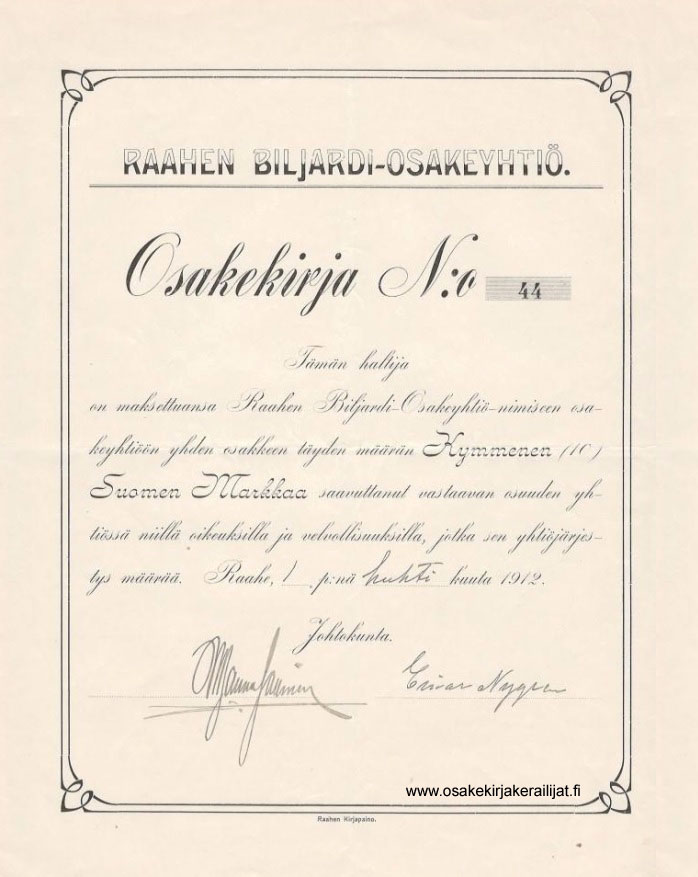 RAAHEN BILJARDI-OSAKEYHTIÖ.
Osakekirja N:o 44
Tämän haltija
on maksettuansa Raahen Biljardi-Osakeyhtiö-nimiseen osa-
keyhtiöön yhden osakkeen täyden määrän Kymmenen (10)
Suomen Markkaa saavuttanut vastaavan osuuden yh-
tiössä niillä oikeuksilla ja velvollisuuksilla, jotka sen yhtiöjärjes-
tys määrää. Raahe, 1 p:nä huhti kuuta 1912.
Johtokunta.
Einar Nygren
www.osakekirjakerailijat.fi
Raahen Kirjapaino.